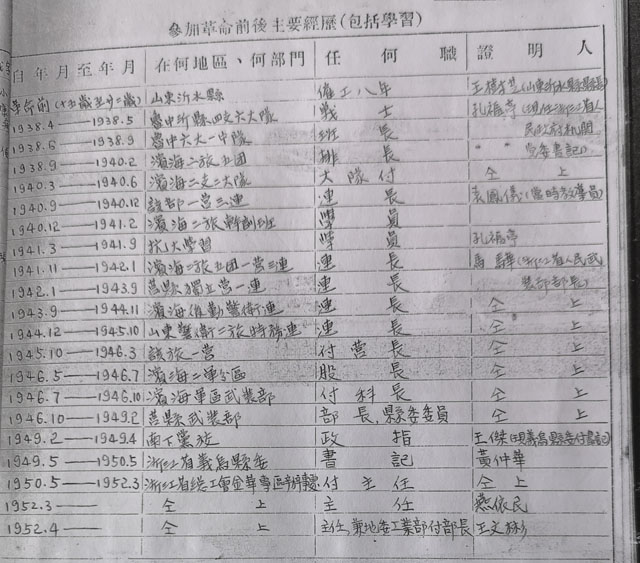 參加革命前後主要經歷(包括學習)
自年月至年月 在何地區、何部門 任何職 證明人
革命前(十五歲至廿二歲) 山東沂水縣 僱工八年 (山東沂水縣縣長)
1938.4——1938.5 魯中沂縣四支六大隊 戰士 孔福亭(現任浙江省人
1938.6——1938.9 魯中六大一中隊 班長 民政府机關
1938.9——1940.2 濱海二旅五团 排長 〃 〃 党委書記)
1940.3——1940.6 濱海二支二大隊 大隊付 仝上
1940.9——1940.12 該部一营三連 連長 袁鳳儀(當時教導員)
1940.12——1941.2 濱海二旅輪訓班 學員
1941.3——1941.9 抗大學習 學員 孔福亭
1941.11——1942.1 濱海二旅五团一营三連 連長 馬驊(浙江省人民武
1942.1——1943.9 莒縣獨立营一連 連長 裝部部長)
1943.9——1944.11 濱海值勤警衛連 連長 仝上
1944.12——1945.10 山東警衛二旅特務連 連長 仝上
1945.10——1946.3 該旅一营 付营長 仝上
1946.5——1946.7 濱海二軍分區 股長 仝上
1946.7——1946.10 濱海軍區武裝部 付科長 仝上
1946.10——1949.2 莒縣武裝部 部長,縣委委員 仝上
1949.2——1949.4 南下黨旅 政指 王傑(現義烏縣委付書記)
1949.5——1950.5 浙江省義烏縣委 書記 黃仲華
1950.5——1952.3 浙江省總工會金華專區辦事處 付主任 仝上
1952.3—— 仝上 主任 燕依民
1952.4—— 仝上 主任,兼地委工業部付部長 王文彬